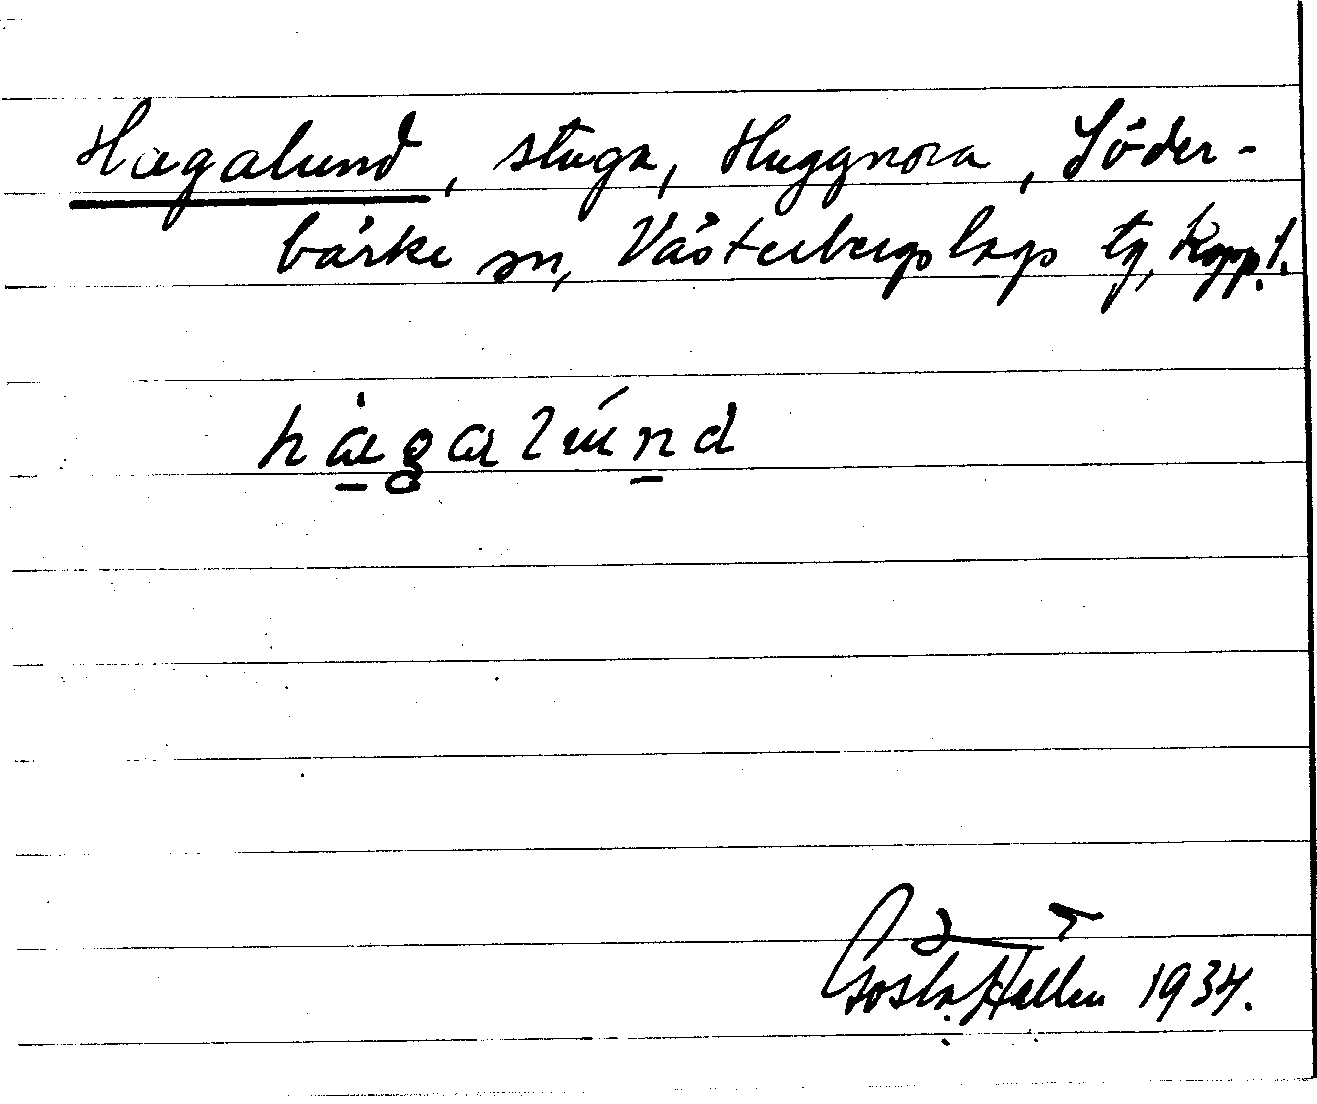 Hagalund, stuga, Huggnora, Söder-
bärke sn, Västerbergslags tg, Kopp. l.
hàgalúnd
Gösta Hallen 1934.